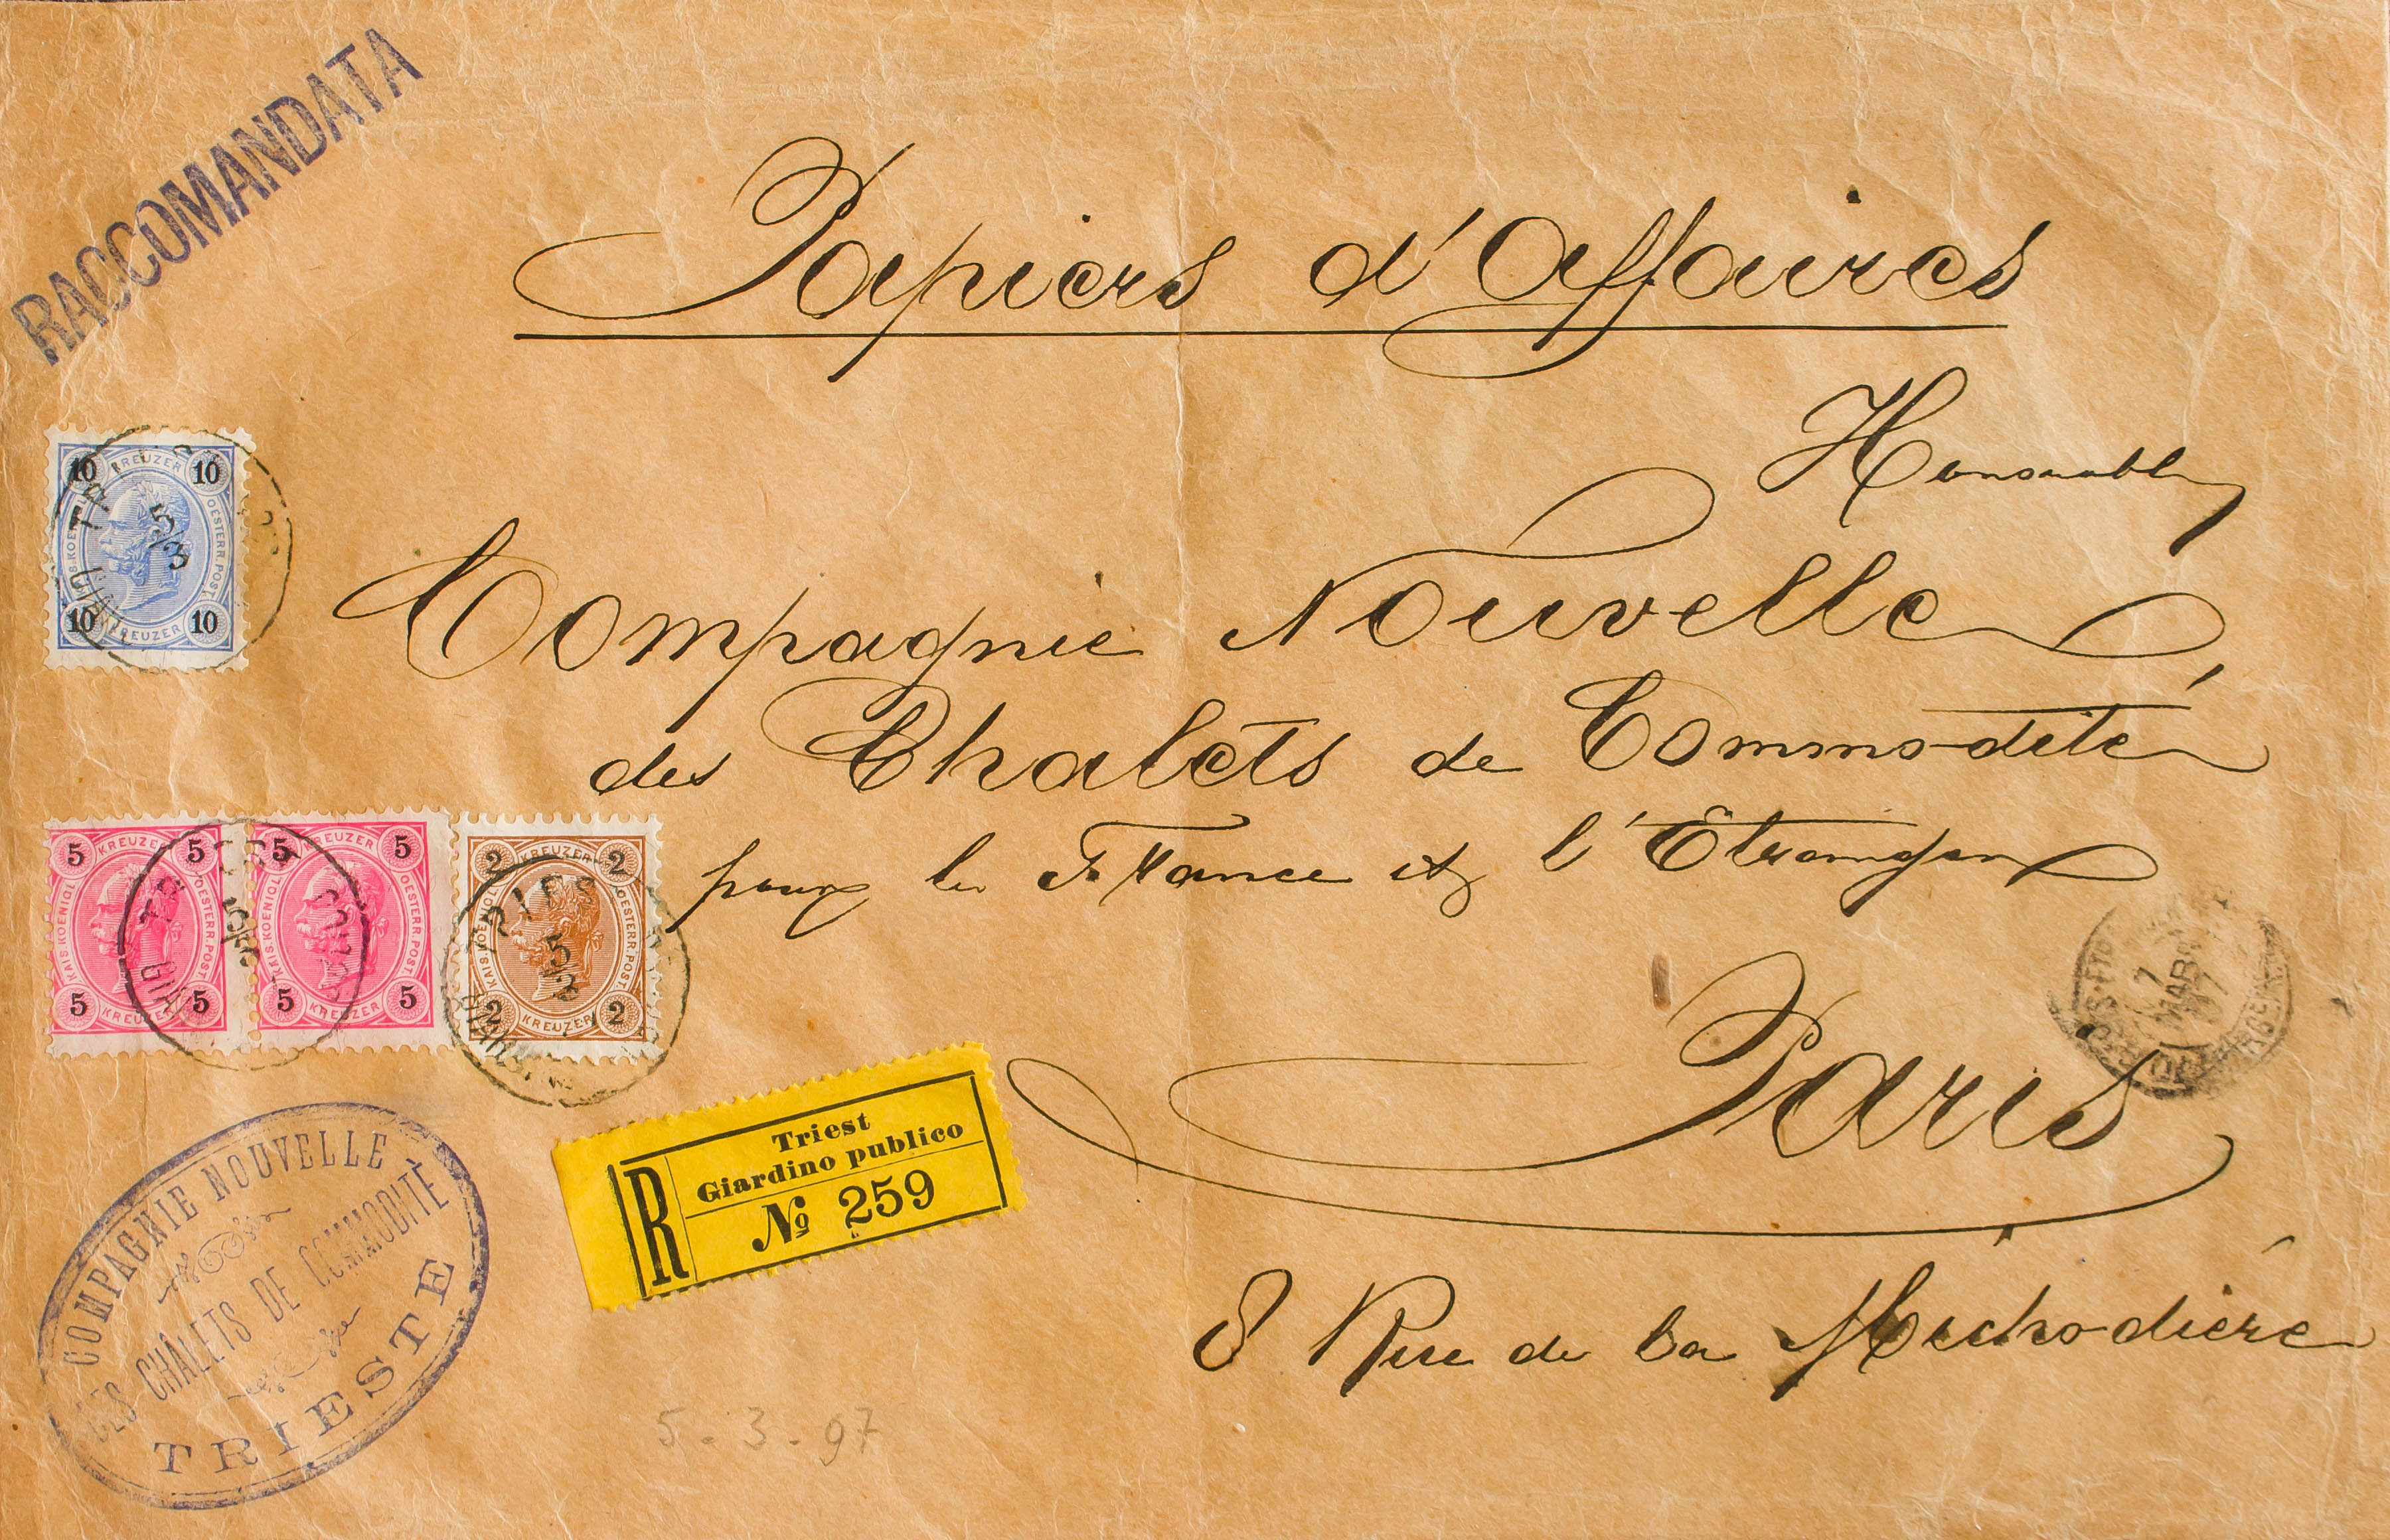 RACCOMANDATA
Papiers d'Affaires
Honorable
Compagnie Nouvelle
des Chalets de Commodité
pour la France et l'Etranger
Paris
8 Rue de la Michodière
10 KREUZER 10
KAIS. KOENIGL. OESTERR. POST.
5/3
10 KREUZER 10
5 KREUZER 5
KAIS. KOENIGL. OESTERR. POST.
5 KREUZER 5
5 KREUZER 5
KAIS. KOENIGL. OESTERR. POST.
5 KREUZER 5
5/3
2 KREUZER 2
KAIS. KOENIGL. OESTERR. POST.
2 KREUZER 2
TRIEST
5/3
7
MARS
97
R
Triest
Giardino publico
№ 259
COMPAGNIE NOUVELLE
DES CHÂLETS DE COMMODITÉ
TRIESTE
5.3.97